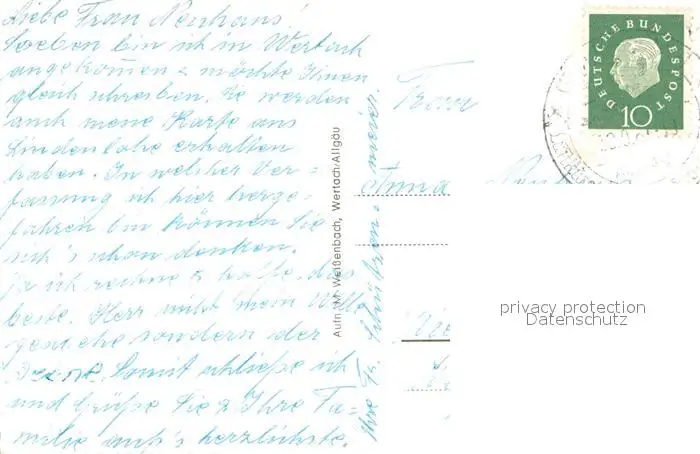 Liebe Frau Neuhaus!
Soeben bin ich in Wertach
angekommen & möchte Ihnen
gleich schreiben. Sie werden
auch meine Karte aus
Lindenlohe erhalten
haben. In welcher Ver=
fassung ich hier herge=
fahren bin können Sie
sich's schon denken.
Ja ich rechne & hoffe, das
beste. Herr nicht mein Wille
geschehe sondern der
Deine. Somit schließe ich
und Grüße Sie & Ihre Fa=
milie auf's herzlichste.
Ihre Fr. Schützen meier.
Aufn. M. Weißenbach, Wertach/Allgäu
Frau
Anna
DEUTSCHE BUNDESPOST
10
privacy protection
Datenschutz